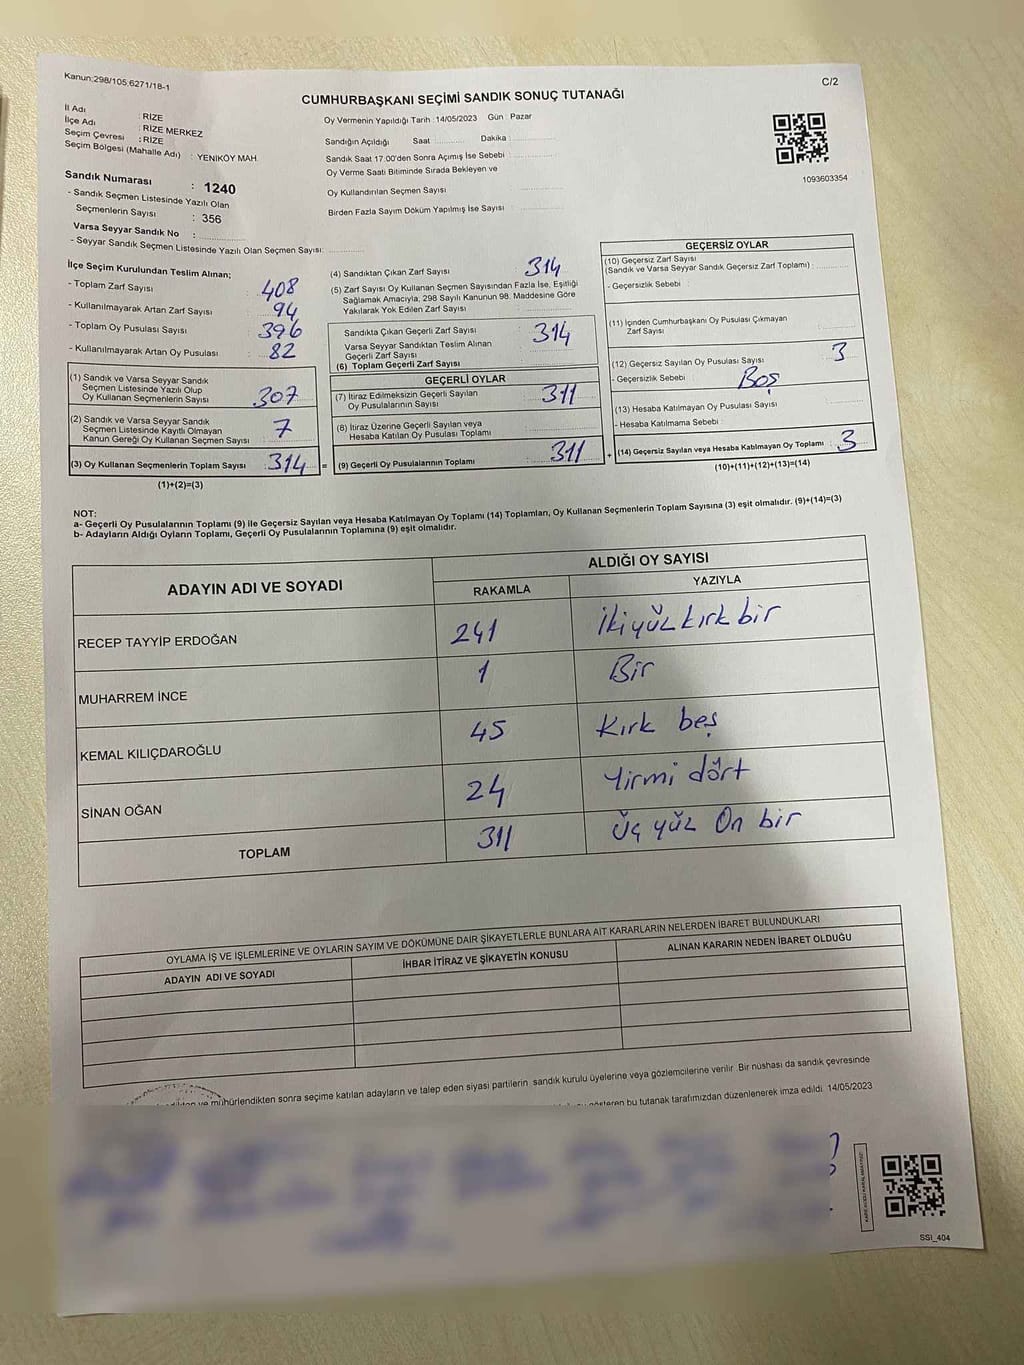 Kanun:298/105.6271/18-1
C/2
CUMHURBAŞKANI SEÇİMİ SANDIK SONUÇ TUTANAĞI
İl Adı : RİZE
İlçe Adı : RİZE MERKEZ
Seçim Çevresi : RİZE
Seçim Bölgesi (Mahalle Adı) : YENİKÖY MAH.
Sandık Numarası : 1240
- Sandık Seçmen Listesinde Yazılı Olan
Seçmenlerin Sayısı : 356
Varsa Seyyar Sandık No :
- Seyyar Sandık Seçmen Listesinde Yazılı Olan Seçmen Sayısı:
Oy Vermenin Yapıldığı Tarih : 14/05/2023 Gün : Pazar
Sandığın Açıldığı Saat Dakika :
Sandık Saat 17.00'den Sonra Açımış İse Sebebi :
Oy Verme Saati Bitiminde Sırada Bekleyen ve
Oy Kullandırılan Seçmen Sayısı :
Birden Fazla Sayım Döküm Yapılmış İse Sayısı :
1093603354
İlçe Seçim Kurulundan Teslim Alınan;
- Toplam Zarf Sayısı : 408
- Kullanılmayarak Artan Zarf Sayısı : 94
- Toplam Oy Pusulası Sayısı : 396
- Kullanılmayarak Artan Oy Pusulası : 82
(1) Sandık ve Varsa Seyyar Sandık
Seçmen Listesinde Yazılı Olup
Oy Kullanan Seçmenlerin Sayısı : 307
(2) Sandık ve Varsa Seyyar Sandık
Seçmen Listesinde Kayıtlı Olmayan
Kanun Gereği Oy Kullanan Seçmen Sayısı : 7
(3) Oy Kullanan Seçmenlerin Toplam Sayısı : 314 =
(1)+(2)=(3)
(4) Sandıktan Çıkan Zarf Sayısı : 314
(5) Zarf Sayısı Oy Kullanan Seçmen Sayısından Fazla İse, Eşitliği
Sağlamak Amacıyla, 298 Sayılı Kanunun 98. Maddesine Göre
Yakılarak Yok Edilen Zarf Sayısı :
Sandıkta Çıkan Geçerli Zarf Sayısı : 314
Varsa Seyyar Sandıktan Teslim Alınan
Geçerli Zarf Sayısı :
(6) Toplam Geçerli Zarf Sayısı :
GEÇERLİ OYLAR
(7) İtiraz Edilmeksizin Geçerli Sayılan
Oy Pusulalarının Sayısı : 311
(8) İtiraz Üzerine Geçerli Sayılan veya
Hesaba Katılan Oy Pusulası Toplamı :
(9) Geçerli Oy Pusulalarının Toplamı : 311 +
GEÇERSİZ OYLAR
(10) Geçersiz Zarf Sayısı
(Sandık ve Varsa Seyyar Sandık Geçersiz Zarf Toplamı) :
- Geçersizlik Sebebi :
(11) İçinden Cumhurbaşkanı Oy Pusulası Çıkmayan
Zarf Sayısı :
(12) Geçersiz Sayılan Oy Pusulası Sayısı : 3
- Geçersizlik Sebebi : Boş
(13) Hesaba Katılmayan Oy Pusulası Sayısı :
- Hesaba Katılmama Sebebi :
(14) Geçersiz Sayılan veya Hesaba Katılmayan Oy Toplamı : 3
(10)+(11)+(12)+(13)=(14)
NOT:
a- Geçerli Oy Pusulalarının Toplamı (9) ile Geçersiz Sayılan veya Hesaba Katılmayan Oy Toplamı (14) Toplamları, Oy Kullanan Seçmenlerin Toplam Sayısına (3) eşit olmalıdır. (9)+(14)=(3)
b- Adayların Aldığı Oyların Toplamı, Geçerli Oy Pusulalarının Toplamına (9) eşit olmalıdır.
ADAYIN ADI VE SOYADI
ALDIĞI OY SAYISI
RAKAMLA YAZIYLA
RECEP TAYYİP ERDOĞAN 241 İki yüz kırk bir
MUHARREM İNCE 1 Bir
KEMAL KILIÇDAROĞLU 45 Kırk beş
SİNAN OĞAN 24 Yirmi dört
TOPLAM 311 Üç yüz On bir
OYLAMA İŞ VE İŞLEMLERİNE VE OYLARIN SAYIM VE DÖKÜMÜNE DAİR ŞİKAYETLERLE BUNLARA AİT KARARLARIN NELERDEN İBARET BULUNDUKLARI
ADAYIN ADI VE SOYADI İHBAR İTİRAZ VE ŞİKAYETİN KONUSU ALINAN KARARIN NEDEN İBARET OLDUĞU
mühürlendikten sonra seçime katılan adayların ve talep eden siyasi partilerin sandık kurulu üyelerine veya gözlemcilerine verilir. Bir nüshası da sandık çevresinde
gösteren bu tutanak tarafımızdan düzenlenerek imza edildi. 14/05/2023
KAREKODU KARALAMAYINIZ!
SSI_404